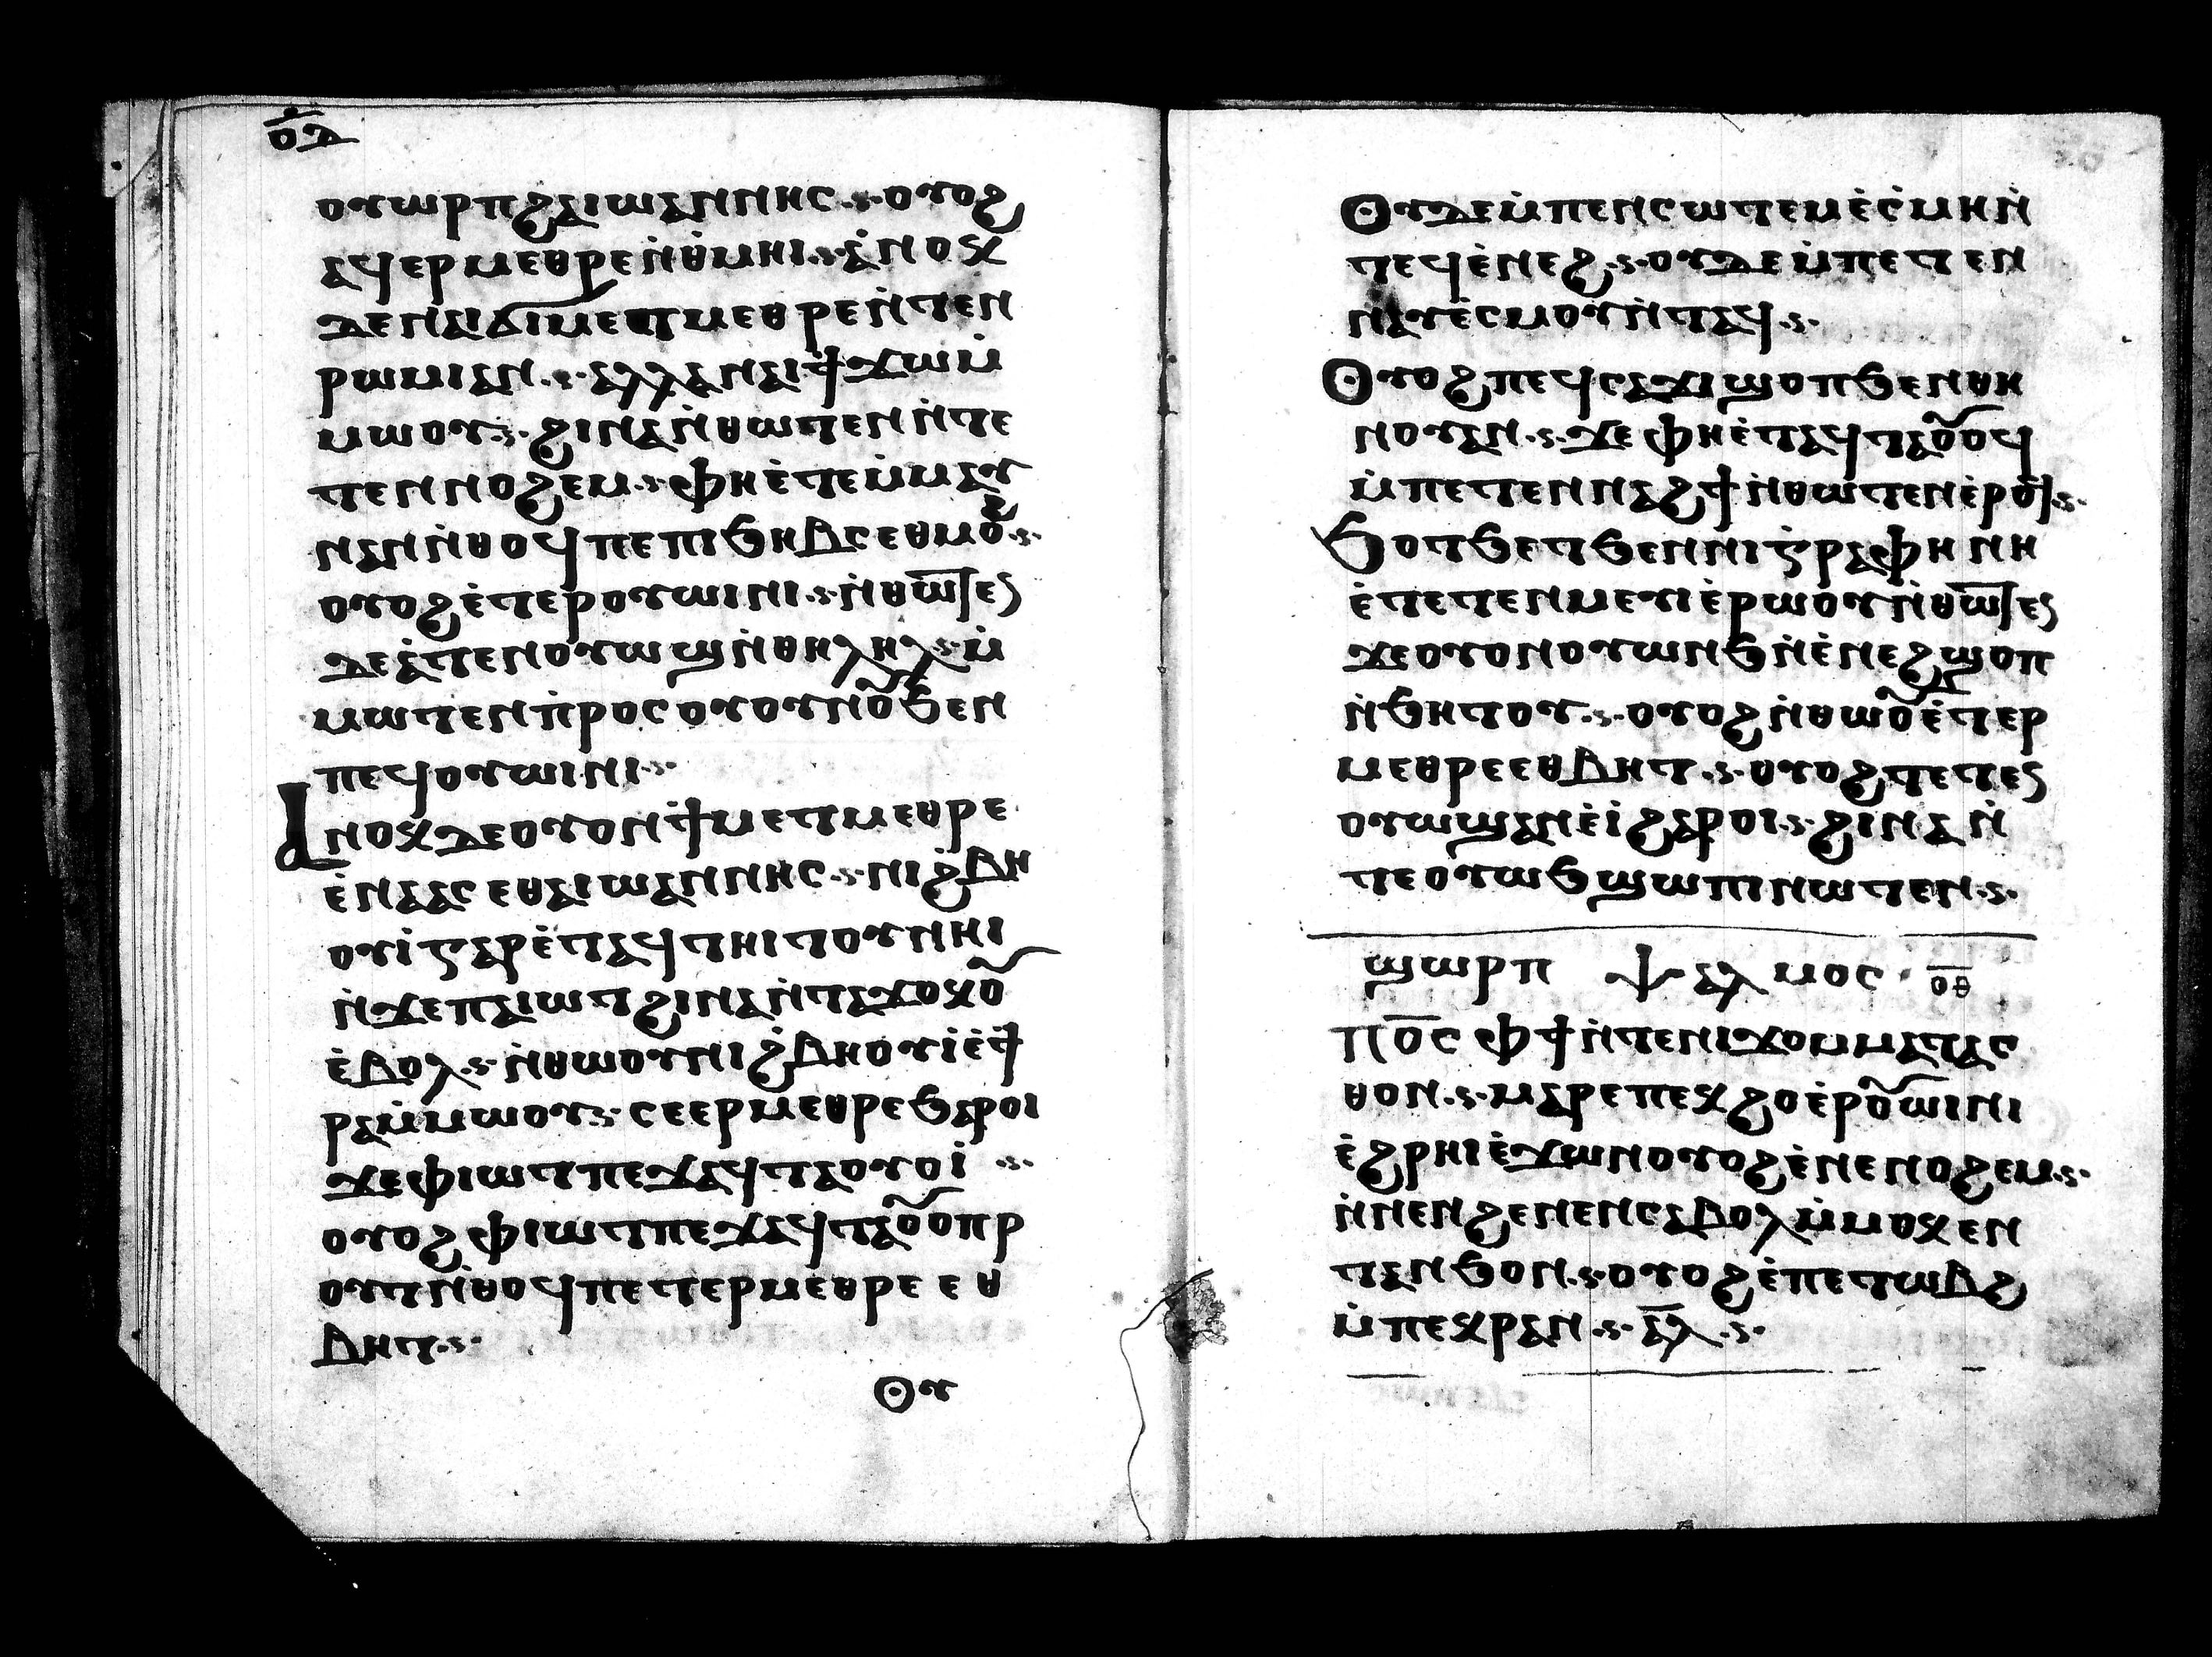 ⲟⲇ
ⲟⲩⲱⲣⲡ ϩⲁ ⲓⲱⲁⲛⲛⲏⲥ ·ⲋ· ⲟⲩⲟϩ
ⲁϥⲉⲣⲙⲉⲑⲣⲉ ⲛ̇ⲑ̇ⲙⲏⲓ ·ⲋ· ⲁ̇ⲛⲟⲕ
ⲇⲉ ⲛⲁⲓϭⲓ ⲙⲉⲧⲙⲉⲑⲣⲉ ⲛ̇ⲧⲉⲛ
ⲣⲱⲙⲓ ⲁⲛ ·ⲋ· ⲁⲗⲗⲁ ⲛⲁⲓ ϯϫⲱ ⲙ̇
ⲙⲱⲟⲩ ·ⲋ· ϩⲓⲛⲁ ⲛ̇ⲑⲱⲧⲉⲛ ⲛ̇ⲧⲉ
ⲧⲉⲛⲛⲟϩⲉⲙ ·ⲋ· ⲫⲏ ⲉ̇ⲧⲉⲙ̇ⲙⲁⲩ
ⲛⲁⲛ ⲛ̇ⲑⲟϥ ⲡⲉ ⲡⲓϧⲏⲃⲥ ⲉⲑⲙⲟϩ ·ⲋ·
ⲟⲩⲟϩ ⲉ̇ⲧⲉⲣⲟⲩⲱⲓⲛⲓ ·ⲋ· ⲛ̇ⲑⲱⲧⲉⲛ
ⲇⲉ ⲁ̇ⲧⲉⲛⲟⲩⲱϣ ⲛ̇ⲑⲏⲗⲏⲗ ·ⲋ· ⲙ̇
ⲙⲱⲧⲉⲛ ⲡ̇ⲣⲟⲥ ⲟⲩⲟⲩⲛⲟⲩ ϧⲉⲛ
ⲡⲉϥⲟⲩⲱⲓⲛⲓ ·ⲋ·
Ⲁⲛⲟⲕ ⲇⲉ ⲟⲩⲟⲛϯ ⲙⲉⲧⲙⲉⲑⲣⲉ
ⲉ̇ⲛⲁⲁⲥ ⲉⲑⲁ ⲓⲱⲁⲛⲛⲏⲥ ·ⲋ· ⲛⲓϩ̇ⲃⲏ
ⲟⲩⲓ̇ ⲅⲁⲣ ⲉ̇ⲧⲁϥⲧⲏⲓⲧⲟⲩ ⲛⲏⲓ
ⲛ̇ϫⲉ ⲡⲁⲓⲱⲧ ϩⲓⲛⲁ ⲛ̇ⲧⲁϫⲟⲕⲟⲩ
ⲉ̇ⲃⲟⲗ ·ⲋ· ⲛ̇ⲑⲱⲟⲩ ⲛⲓϩ̇ⲃⲏⲟⲩⲓ̇ ⲉ̇ϯ
ⲣⲁ ⲙ̇ⲙⲱⲟⲩ ·ⲋ· ⲥⲉⲉⲣⲙⲉⲑⲣⲉ ϧⲁⲣⲟⲓ
ϫⲉ ⲫⲓⲱⲧ ⲡⲉϫⲁϥⲧⲁⲟⲩⲟⲓ̇ ·ⲋ·
ⲟⲩⲟϩ ⲫⲓⲱⲧ ⲡⲉϫⲁϥⲧⲁⲟⲩⲟ ⲡⲣ
ⲟⲩⲧ ⲛ̇ⲑⲟϥ ⲡⲉⲧⲉⲣⲙⲉⲑⲣⲉ ⲉⲑ
ⲃⲏⲧ ·ⲋ·
Ⲟⲩ
Ⲟⲩⲇⲉ ⲙ̇ⲡⲉⲛⲥⲱⲧⲉⲙ ⲉ̇ⲥ̇ⲙⲏ ⲛ̇
ⲧⲉϥ ⲉ̇ⲛⲉϩ ·ⲋ· ⲟⲩⲇⲉ ⲙ̇ⲡⲉⲧⲉⲛ
ⲛⲁⲩ ⲉ̇ⲥⲙⲟⲧ ⲛ̇ⲧⲁϥ ·ⲋ·
Ⲟⲩⲟϩ ⲡⲉϥⲥⲁϫⲓ ϣⲟⲡ ϧⲉⲛ ⲑⲏ
ⲛⲟⲩ ⲁⲛ ·ⲋ· ϫⲉ ⲫⲏ ⲉ̇ⲧⲁϥⲧⲁⲟⲩⲟϥ
ⲙ̇ⲡⲉⲧⲉⲛⲛⲁϩϯ ⲛ̇ⲑⲱⲧⲉⲛ ⲉ̇ⲣⲟϥ ·ⲋ·
Ϧⲟⲧϧⲉⲧ ϧⲉⲛ ⲛⲓⲅ̇ⲣⲁⲫⲏ ⲛⲏ
ⲉ̇ⲧⲉⲧⲉⲛⲙⲉⲩⲓ ⲉ̇ⲣⲱⲟⲩ ⲛ̇ⲑⲱⲧⲉⲛ
ϫⲉ ⲟⲩⲟⲛ ⲟⲩⲱⲛϧ ⲛ̇ⲉ̇ⲛⲉϩ ϣⲟⲡ
ⲛ̇ϧⲏⲧⲟⲩ ·ⲋ· ⲟⲩⲟϩ ⲛ̇ⲑⲱⲟⲩ ⲉ̇ⲧⲉⲣ
ⲙⲉⲑⲣⲉ ⲉⲑⲃⲏⲧ ·ⲋ· ⲟⲩⲟϩ ⲧⲉⲧⲉⲛ
ⲟⲩⲱϣ ⲁⲛ ⲉ̇ⲓ̇ ϩⲁⲣⲟⲓ ·ⲋ· ϩⲓⲛⲁ ⲛ̇
ⲧⲉ ⲟⲩⲱϧ ϣⲱⲡⲓ ⲛⲱⲧⲉⲛ ·ⲋ·
ϣⲱⲣⲡ ⲯⲁⲗⲙⲟⲥ ⲟⲑ
Ⲡⲟ̅ⲥ ⲫϯ ⲛ̇ⲧⲉ ⲛⲓϫⲟⲙ ⲙⲁⲧⲁⲥ
ⲑⲟⲛ ·ⲋ· ⲙⲁⲣⲉ ⲡⲉⲕϩⲟ ⲉⲣⲟⲩⲱⲓⲛⲓ
ⲉ̇ϩⲣⲏⲓ ⲉ̇ϫⲱⲛ ⲟⲩⲟϩ ⲉ̇ⲛⲉⲛⲟϩⲉⲙ ·ⲋ·
ⲛ̇ⲛⲉⲛϩⲉⲛⲉⲛ ⲥⲁⲃⲟⲗ ⲙ̇ⲙⲟⲕ ⲉⲛ
ⲧⲁⲛϧⲟⲛ ·ⲋ· ⲟⲩⲟϩ ⲉ̇ⲡⲉⲧⲱⲃϩ
ⲙ̇ⲡⲉⲕⲣⲁⲛ ·ⲋ· ⲁ̅ⲗ̅ ·ⲋ·